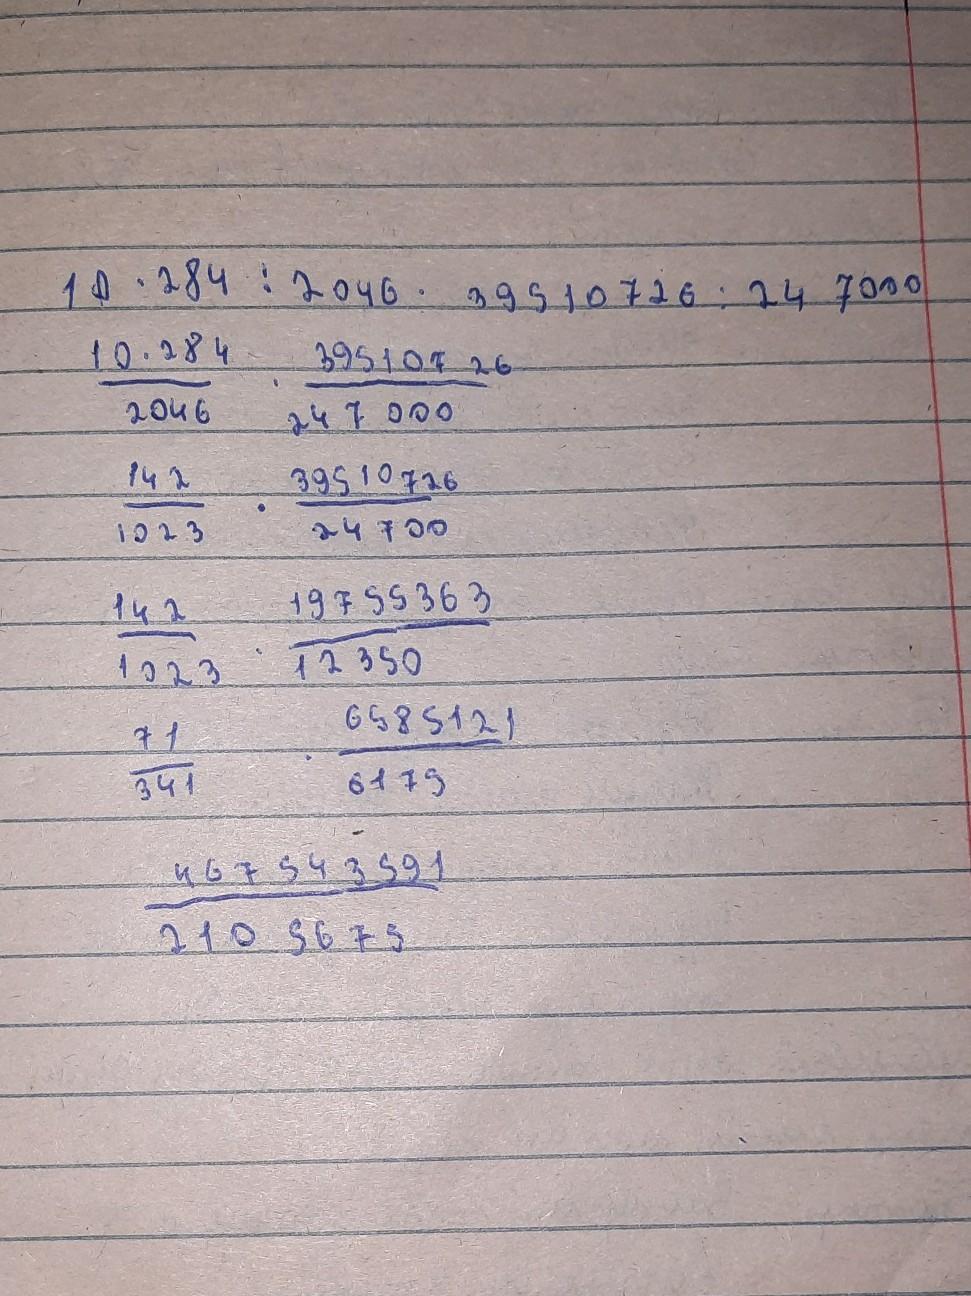 10 · 284 : 2046 · 39510726 : 247000
10 · 284 / 2046 · 39510726 / 247000
142 / 1023 · 39510726 / 24700
142 / 1023 · 19755363 / 12350
71 / 341 · 6585121 / 6175
467543591 / 2105675